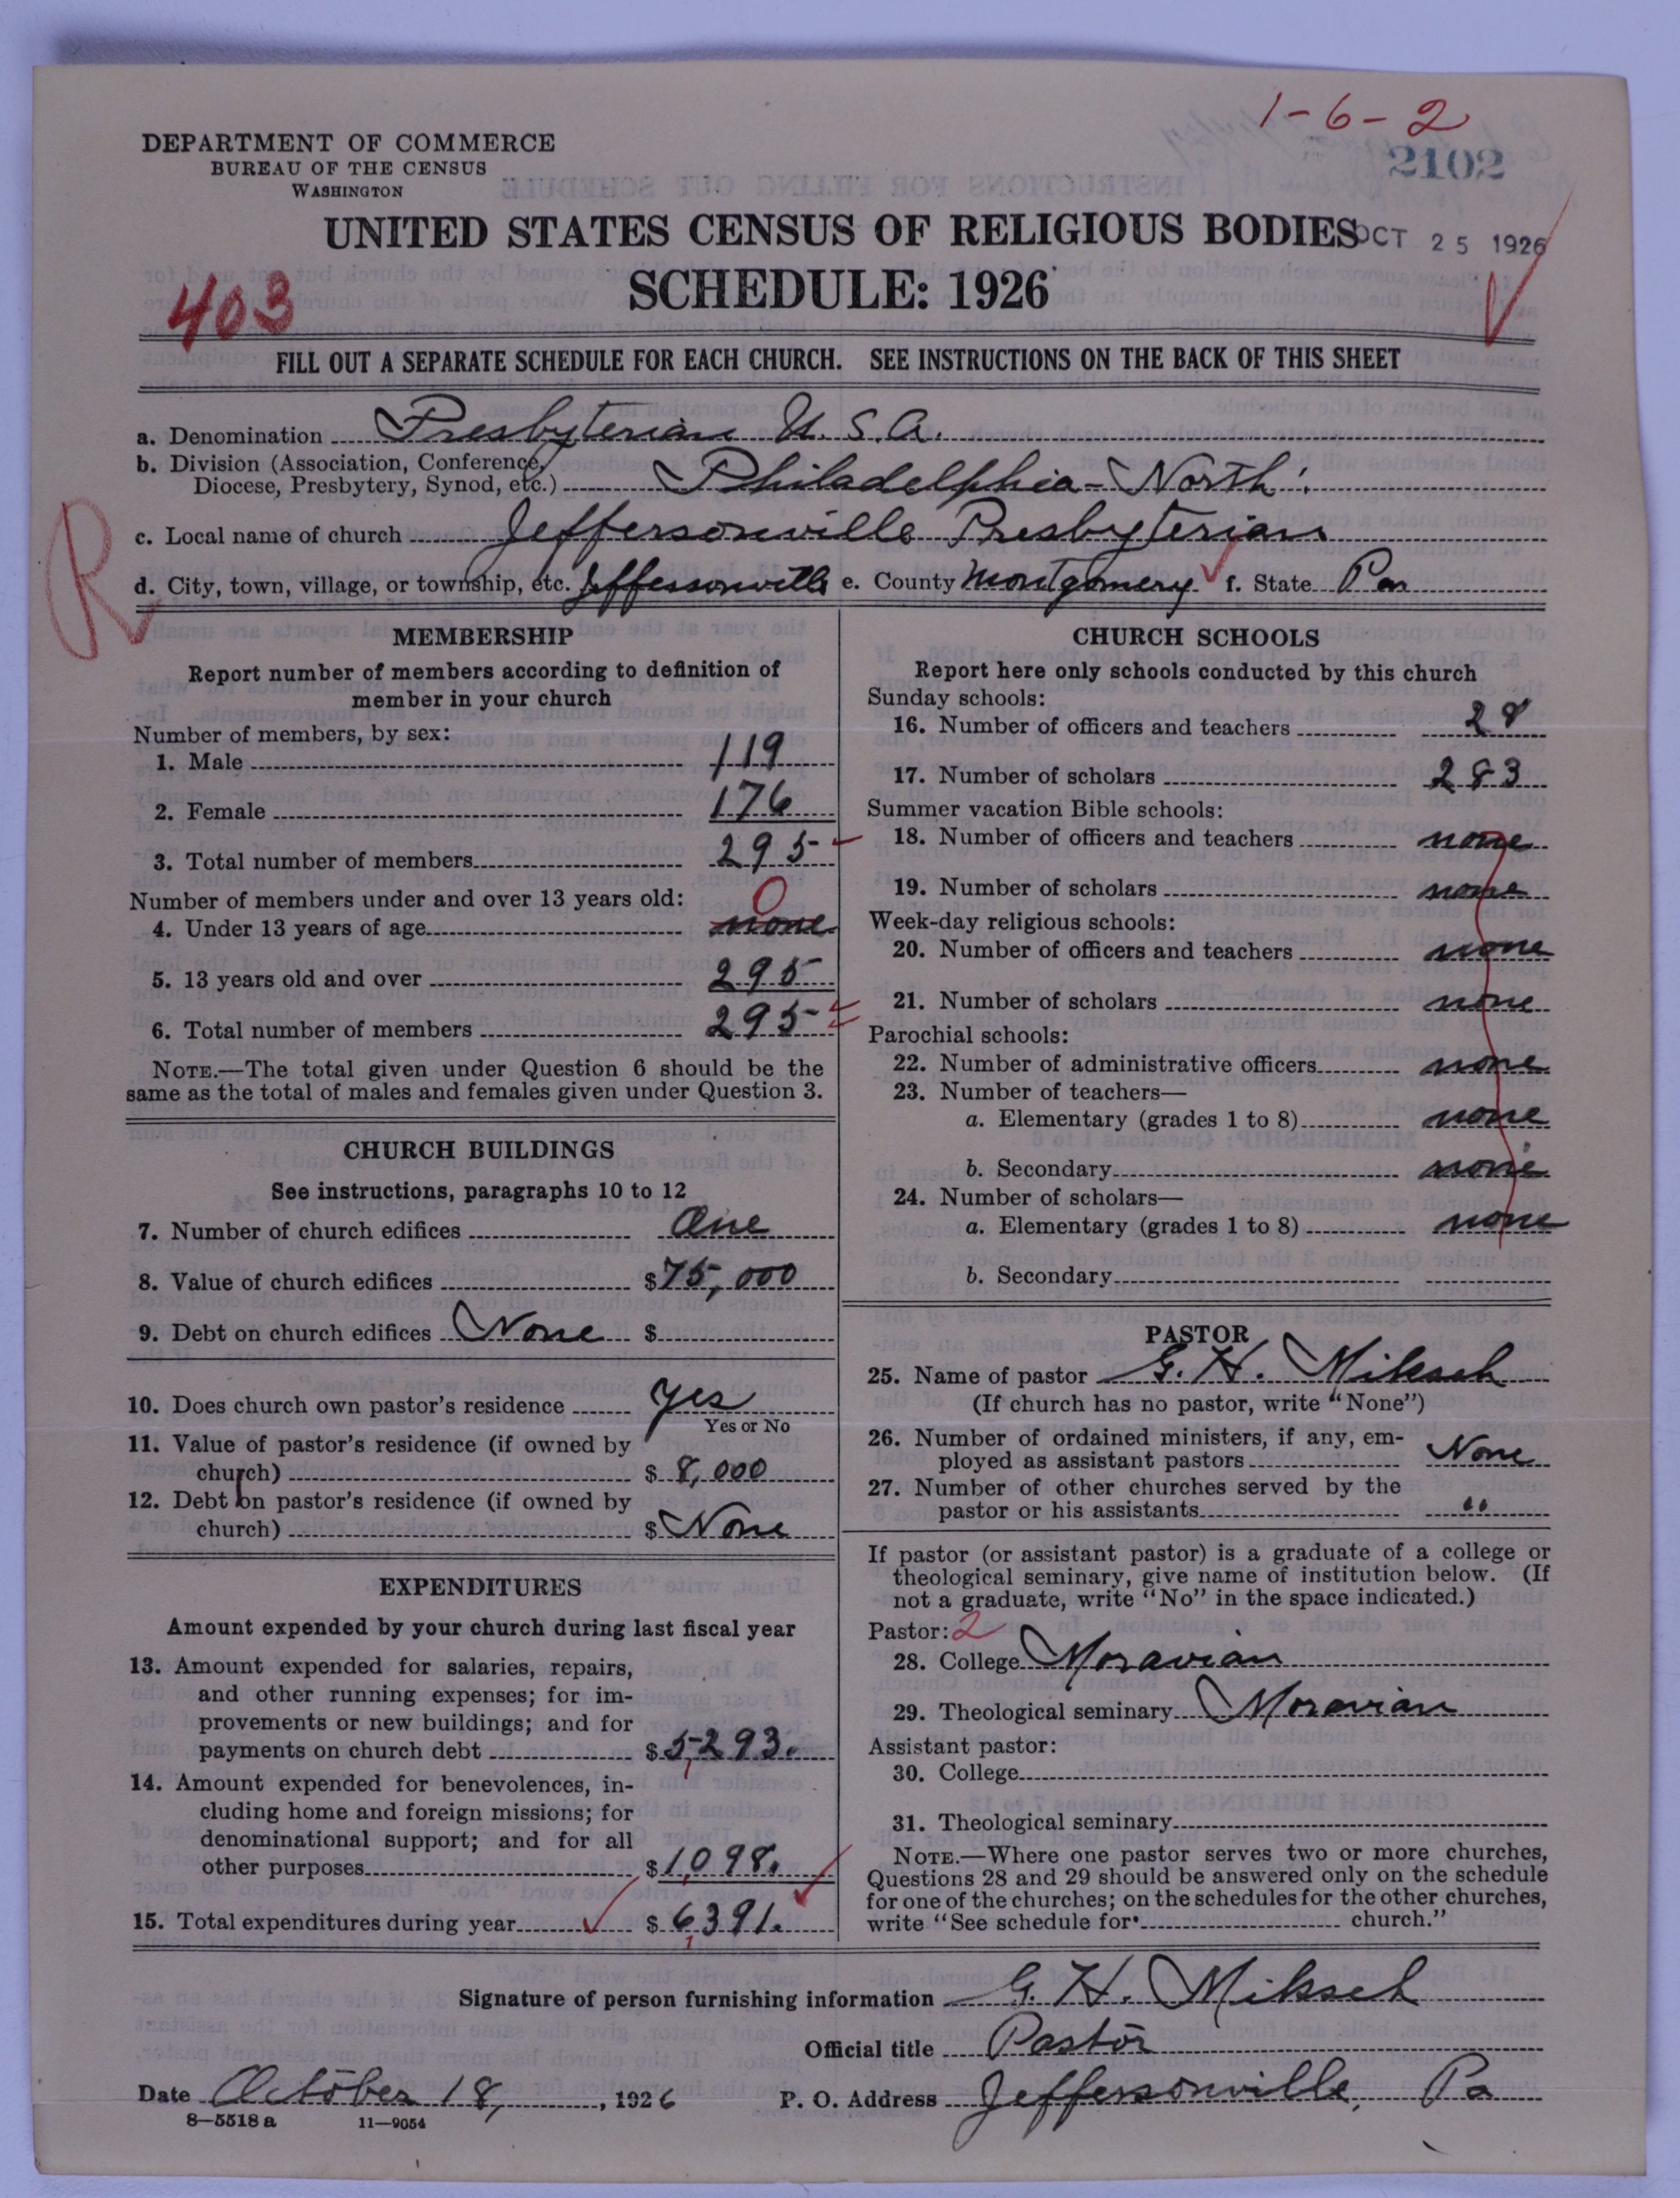 1-6-2
2102
DEPARTMENT OF COMMERCE
BUREAU OF THE CENSUS
WASHINGTON
UNITED STATES CENSUS OF RELIGIOUS BODIES
OCT 25 1926
SCHEDULE: 1926
403
FILL OUT A SEPARATE SCHEDULE FOR EACH CHURCH. SEE INSTRUCTIONS ON THE BACK OF THIS SHEET
a. Denomination Presbyterian U.S.A.
b. Division (Association, Conference,
Diocese, Presbytery, Synod, etc.) Philadelphia-North
c. Local name of church Jeffersonville Presbyterian
R
d. City, town, village, or township, etc. Jeffersonville e. County Montgomery f. State Pa
MEMBERSHIP
Report number of members according to definition of
member in your church
Number of members, by sex:
1. Male 119
2. Female 176
3. Total number of members 295
Number of members under and over 13 years old:
0
4. Under 13 years of age none
5. 13 years old and over 295
6. Total number of members 295
NOTE.—The total given under Question 6 should be the
same as the total of males and females given under Question 3.
CHURCH BUILDINGS
See instructions, paragraphs 10 to 12
7. Number of church edifices One
8. Value of church edifices $75,000
9. Debt on church edifices None $
10. Does church own pastor's residence Yes
Yes or No
11. Value of pastor's residence (if owned by
church) $ 8,000
12. Debt on pastor's residence (if owned by
church) $ None
EXPENDITURES
Amount expended by your church during last fiscal year
13. Amount expended for salaries, repairs,
and other running expenses; for im-
provements or new buildings; and for
payments on church debt $ 5,293.
14. Amount expended for benevolences, in-
cluding home and foreign missions; for
denominational support; and for all
other purposes $ 1,098.
15. Total expenditures during year $ 6,391.
CHURCH SCHOOLS
Report here only schools conducted by this church
Sunday schools:
16. Number of officers and teachers 28
17. Number of scholars 283
Summer vacation Bible schools:
18. Number of officers and teachers none
19. Number of scholars none
Week-day religious schools:
20. Number of officers and teachers none
21. Number of scholars none
Parochial schools:
22. Number of administrative officers none
23. Number of teachers—
a. Elementary (grades 1 to 8) none
b. Secondary none
24. Number of scholars—
a. Elementary (grades 1 to 8) none
b. Secondary
PASTOR
25. Name of pastor G. H. Miksch
(If church has no pastor, write "None")
26. Number of ordained ministers, if any, em-
ployed as assistant pastors None
27. Number of other churches served by the
pastor or his assistants "
If pastor (or assistant pastor) is a graduate of a college or
theological seminary, give name of institution below. (If
not a graduate, write "No" in the space indicated.)
Pastor: 2
28. College Moravian
29. Theological seminary Moravian
Assistant pastor:
30. College
31. Theological seminary
NOTE.—Where one pastor serves two or more churches,
Questions 28 and 29 should be answered only on the schedule
for one of the churches; on the schedules for the other churches,
write "See schedule for church."
Signature of person furnishing information G. H. Miksch
Official title Pastor
Date October 18, 1926 P. O. Address Jeffersonville, Pa
8—5518 a 11—9054